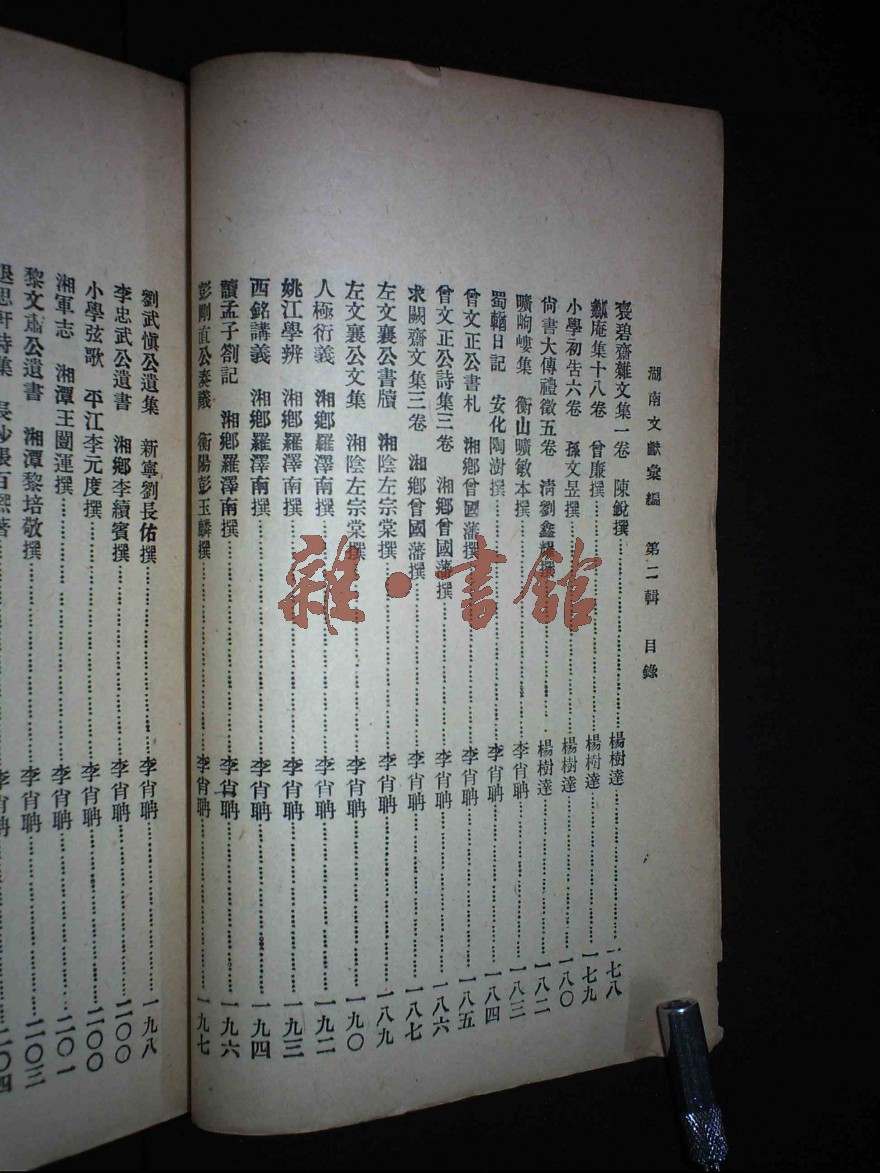 湖南文獻彙編 第二輯 目錄
褒碧齋雜文集一卷 陳銳撰……楊樹達……一七八
瓠庵集十八卷 曾廉撰……楊樹達……一七九
小學初告六卷 孫文昱撰……楊樹達……一八〇
尚書大傳禮徵五卷 清劉鑫耀撰……楊樹達……一八二
曠岣嶁集 衡山曠敏本撰……李肖聃……一八三
蜀輶日記 安化陶澍撰……李肖聃……一八四
曾文正公書札 湘鄉曾國藩撰……李肖聃……一八五
曾文正公詩集三卷 湘鄉曾國藩撰……李肖聃……一八六
求闕齋文集三卷 湘鄉曾國藩撰……李肖聃……一八七
左文襄公書牘 湘陰左宗棠撰……李肖聃……一八九
左文襄公文集 湘陰左宗棠撰……李肖聃……一九〇
人極衍義 湘鄉羅澤南撰……李肖聃……一九二
姚江學辨 湘鄉羅澤南撰……李肖聃……一九三
西銘講義 湘鄉羅澤南撰……李肖聃……一九四
讀孟子劄記 湘鄉羅澤南撰……李肖聃……一九六
彭剛直公奏議 衡陽彭玉麟撰……李肖聃……一九七
劉武愼公遺集 新寧劉長佑撰……李肖聃……一九八
李忠武公遺書 湘鄉李續賓撰……李肖聃……二〇〇
小學弦歌 平江李元度撰……李肖聃……二〇〇
湘軍志 湘潭王闓運撰……李肖聃……二〇一
黎文肅公遺書 湘潭黎培敬撰……李肖聃……二〇三
退思軒詩集 長沙張百熙著……李肖聃……二〇四
雜·書館